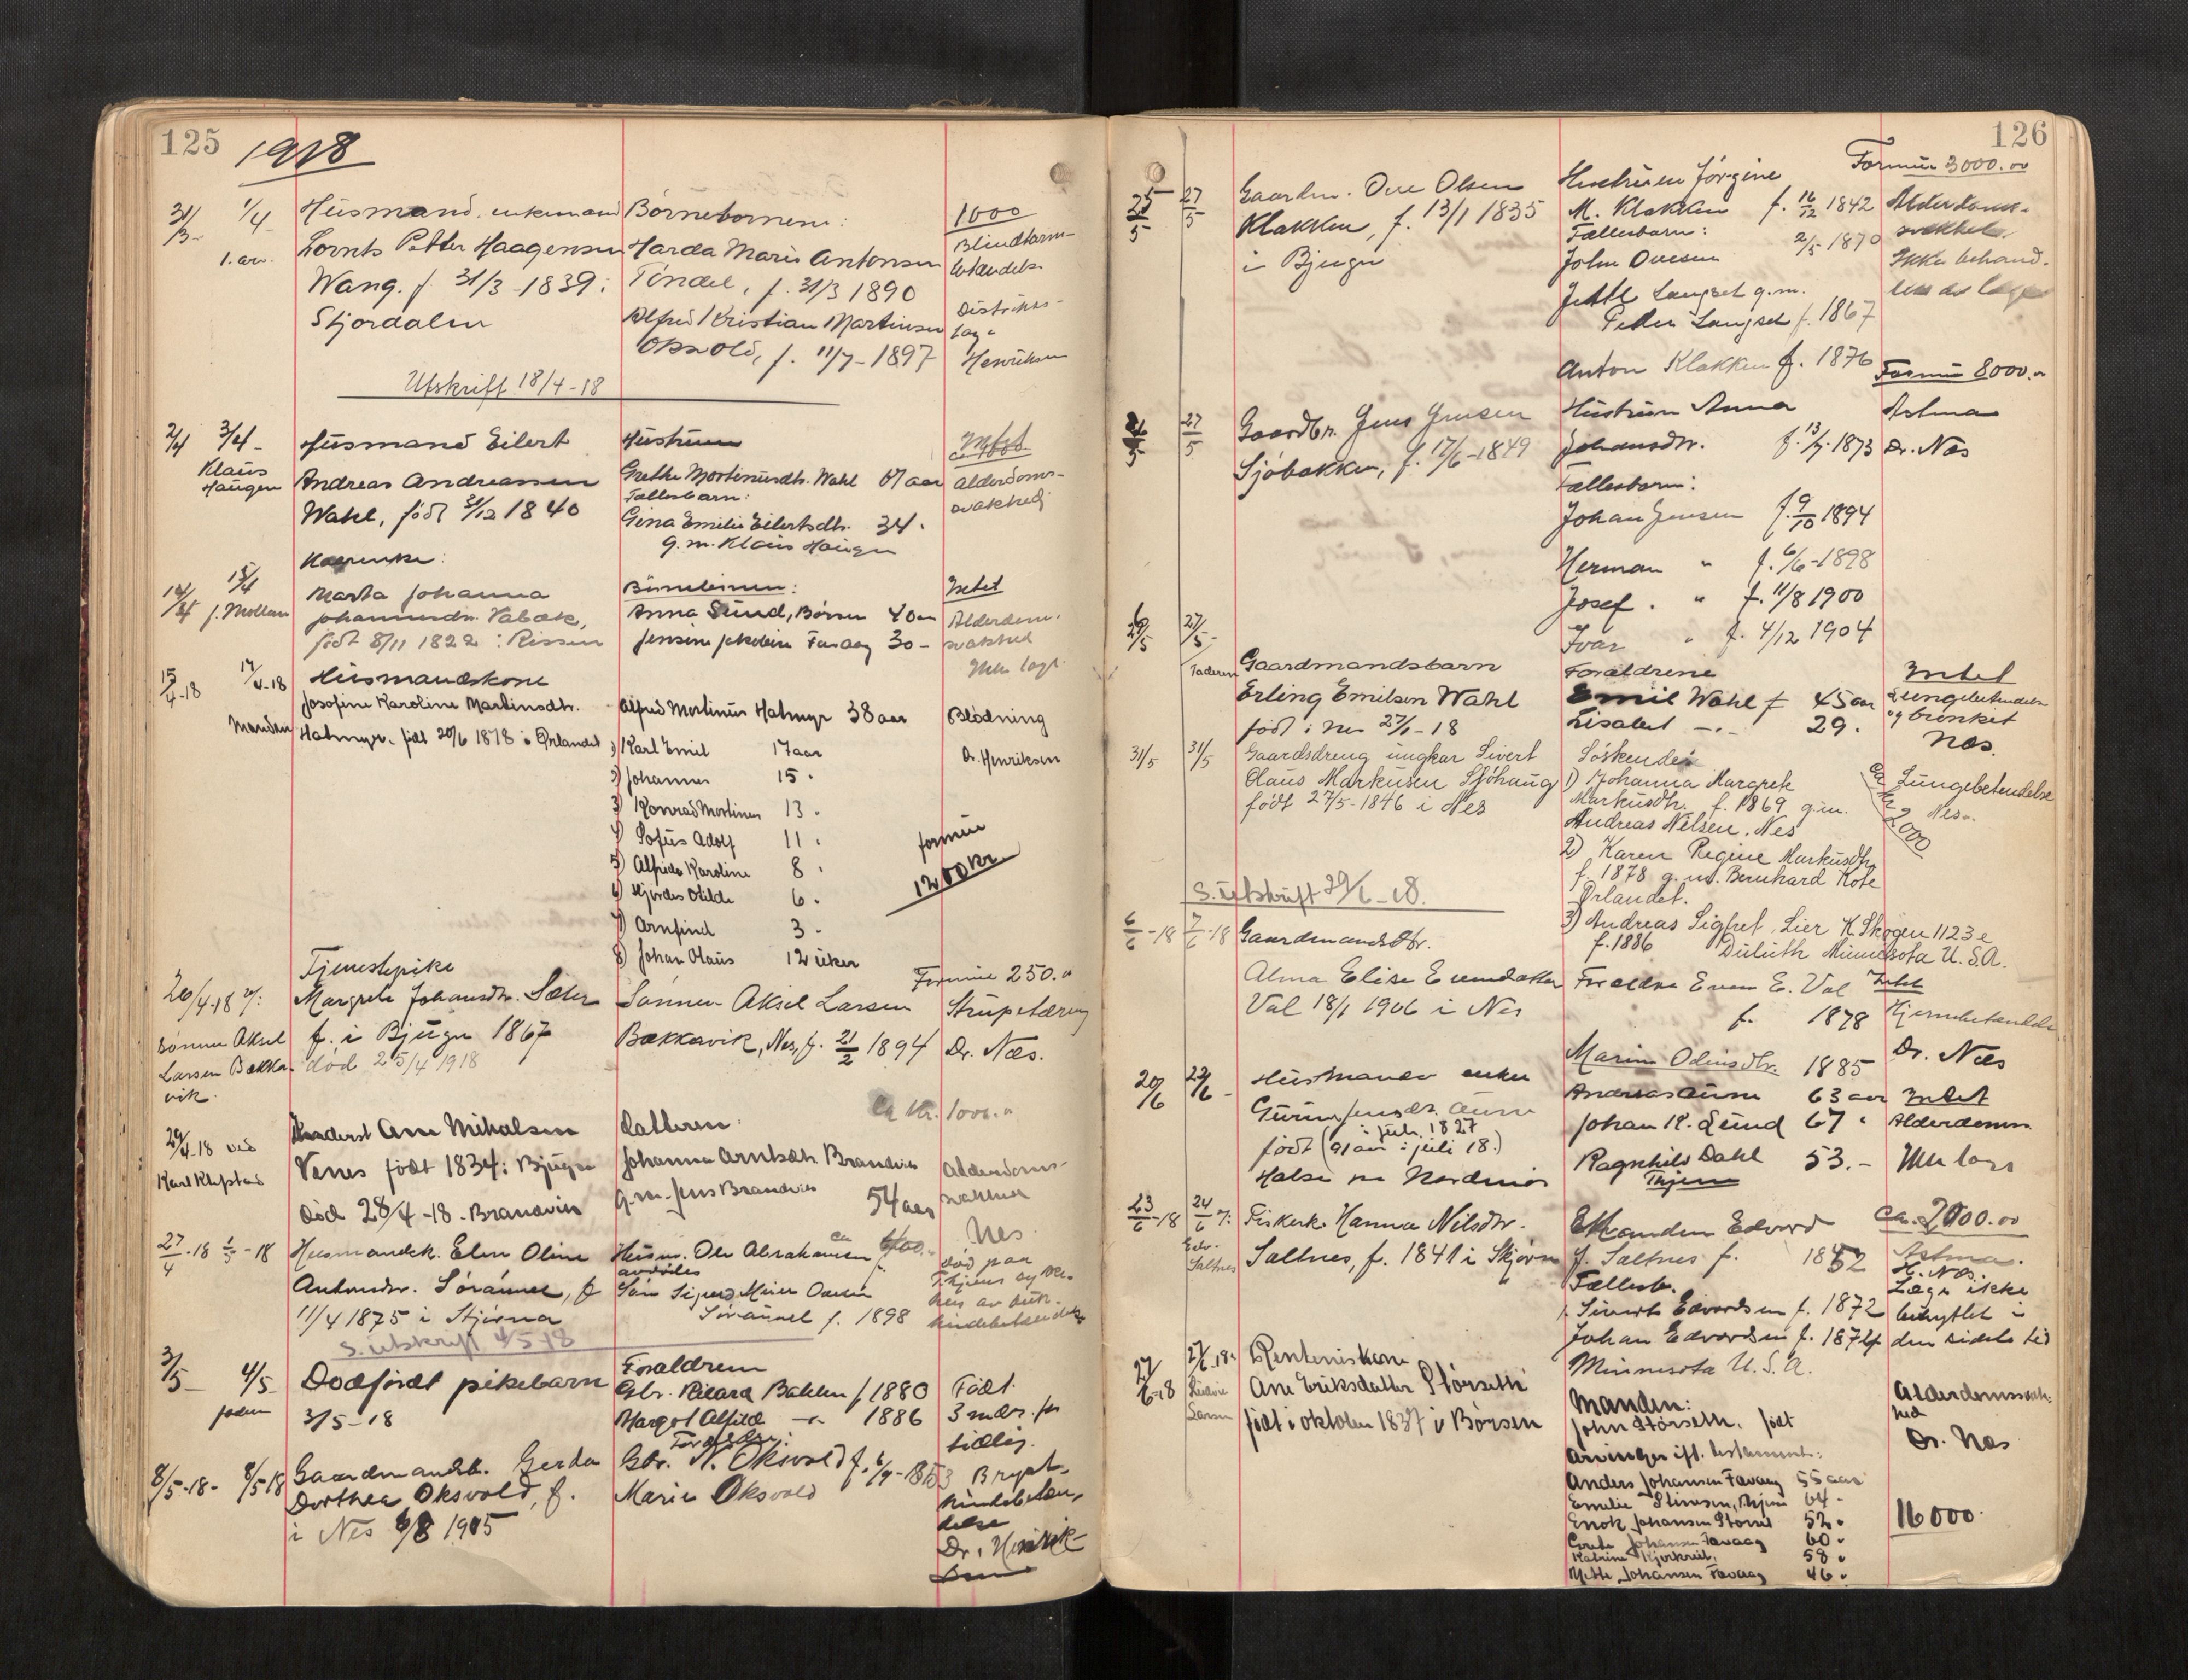 125
1918
31/3- 1/4 Husmand, enkemand Børnebørnene: 1000
1. arv. Lornts Petter Haagensen Harda Marie Antonsen Blindtarm-
Wang. f. 31/3-1839 i Tindel, f. 31/3 1890 betændelse
Stjordalen Alfred Kristian Martinsen Distrikts-
Oksvold, f. 11/7-1897 Henriksen
Utskrift 18/4-18
2/4 3/4- Husmand Eilert Hustruen Intet
Klaus Haugen Andreas Andreassen Grethe Mortinusdtr. Wahl 67 aar Alderdoms-
Wahl, født 31/12 1840 Fællesbarn: svakhed
Gina Emilie Eilertsdtr. 34.
g. m. Klaus Haugen
14/4 15/4 Børnebørnene: Intet
Marta Johanna Anna Sund, Børsen 40 aar Alderdoms-
Johannesdtr. Vabæk, Jensine 30- svakhed
født 8/11 1822 i Rissen Ikke læge
15/4-18 17/4-18 Husmandskone
Josefine Karoline Martinsdtr. Alfred Mortinus Hatmyr 38 aar Blødning
Manden Hatmyr. født 20/6 1878 i Ørlandet 1) Karl Emil 17 aar Dr. Henriksen
2) Johannes 15.
3) Konrad Mortinus 13.
4) Sofus Adolf 11. formue
5) Alfrida Karoline 8. 1200 kr.
6) Hjørdis Otilde 6.
7) Arnfind 3.
8) Johan Olaus 12 uker
Tjenestepike Formue 250.
26/4-18 Margrete Johansdtr. Sæter Sønnen Aksel Larsen Strupetæring
Sønnen Aksel f. i Bjugn 1867 Bakkavik, Nes, f. 21/2 1894 Dr. Næs.
Larsen Bakka- død 25/4 1918
vik.
Ca. kr. 1000.
29/4-18 ved Arn Mikalsen Datteren:
Venes født 1834 i Bjugn Johanna Arntsdtr. Brandvik Alderdoms-
død 28/4-18. Brandvik g. m. Jens Brandvik 54 aar svakhed
Nes
27/4-18 1/5-18 Husmandsk. Elen Oline Husm. Ole Abrahamsen død paa
Antonsdr. Søraunet, f. Søn Sigurd Meier Olsen
11/4 1875 i Stjørna Søraunet f. 1898
S. utskrift 4/5 18
3/5- 4/5- Dødfødt pikebarn Forældrene
faderen 3/5-18 Gbr. Rikard Bakken f. 1880 Født
Margot Alfilde 1886 3 mdr. for
Forældre: tidlig.
8/5-18- 8/5 18 Gaardmandsb. Gerda Gbr. N. Oksvold Bryst-
Dorthea Oksvold, f. Marie Oksvold hindebetæn-
i Nes 9/8 1905 delse
Dr. Henrik-
sen
126
Formue 3000.00
25/5 27/5 Gaardm. Ove Olsen Hustruen Jørgine Alderdoms-
Klakken, f. 13/1 1835 M. Klakken f. 16/12 1842 svakhet.
i Bjugn Fællesbarn: Ikke behand-
John Ovesen 2/5 1870 let av læge
Jette Langset g.m.
Peder Langset f. 1867
Anton Klakken f. 1876
Formue 8000.
27/5 Gaardbr. Jens Jensen Hustruen Anna Astma
Sjøbakken, f. 17/6-1849 Johansdtr. f. 13/7-1873 Dr. Næs
Fællesbarn:
Johan Jensen f. 9/10 1894
Herman " f. 6/6-1898
Josef. " f. 11/8 1900
Ivar " f. 4/12 1904
27/5- Gaardmandsbarn Forældrene Intet
Faderen Erling Emilsen Wahl Emil Wahl f 45 aar Lungebetændelse
født i Nes 27/1-18 Lisabet -"- 29. og bronkit
Nes.
31/5 31/5 Gaardsdreng ungkar Sivert Søskende:
Olaus Markusen Sjøhaug 1) Johanna Margrete Lungebetendelse
født 27/5-1846 i Nes Markusdtr. f. 1869 g.m. Nes.
Andreas Nilsen. Nes
2) Karen Regine Markusdtr.
f. 1878 g. m. Bernhard Kote
Ørlandet.
S. utskrift 29/6-18.
3) Andreas Sigfret, Lier K. Skogen 1123 e
f. 1886 Duluth Minnesota U. S. A.
6/6-18 7/6-18 Gaardmandsdtr.
Alma Elise Evensdatter Forældre Even E. Val Intet
Val 18/1 1906 i Nes f. 1878 Hjernebetændelse
Marie Odinsdtr. 1885 Dr. Næs
20/6 22/6- Husmands enke Andreas Aune 63 aar Intet
Guru Jensdtr. Aune Johan K. Lund 67. Alderdomm
født i juli 1827 Ragnhild Dahl 53.- Ikke læge
(91 aar i juli 18.)
Halse paa Nordmør
23/6-18 24/6 Fiskerk. Hanna Nilsdtr. Manden Edvard Ca. 2000.00
Edv. Saltnes Saltnes, f. 1841 i Skjørn J. Saltnes f. 1852 Astma.
Fællesb. Læge ikke
Sivert Edvardsen f. 1872 benyttet i
Johan Edvardsen f. 1874 den sidste tid
Minnesota U. S. A.
27/6-18 27/6 18. Rentenistkone
Ane Eriksdatter Størseth Manden: Alderdomssvak-
født i oktober 1837 i Børsen John Størseth, født hed
Arvinger ifl. testament: Dr. Næs
Anders Johansen Fævaag 55 aar
Emelie 64- 16000.
Enok Johansen 52.
Johansen Fævaag 60.
Katrine 58.
Mette Johansen Fævaag 46.